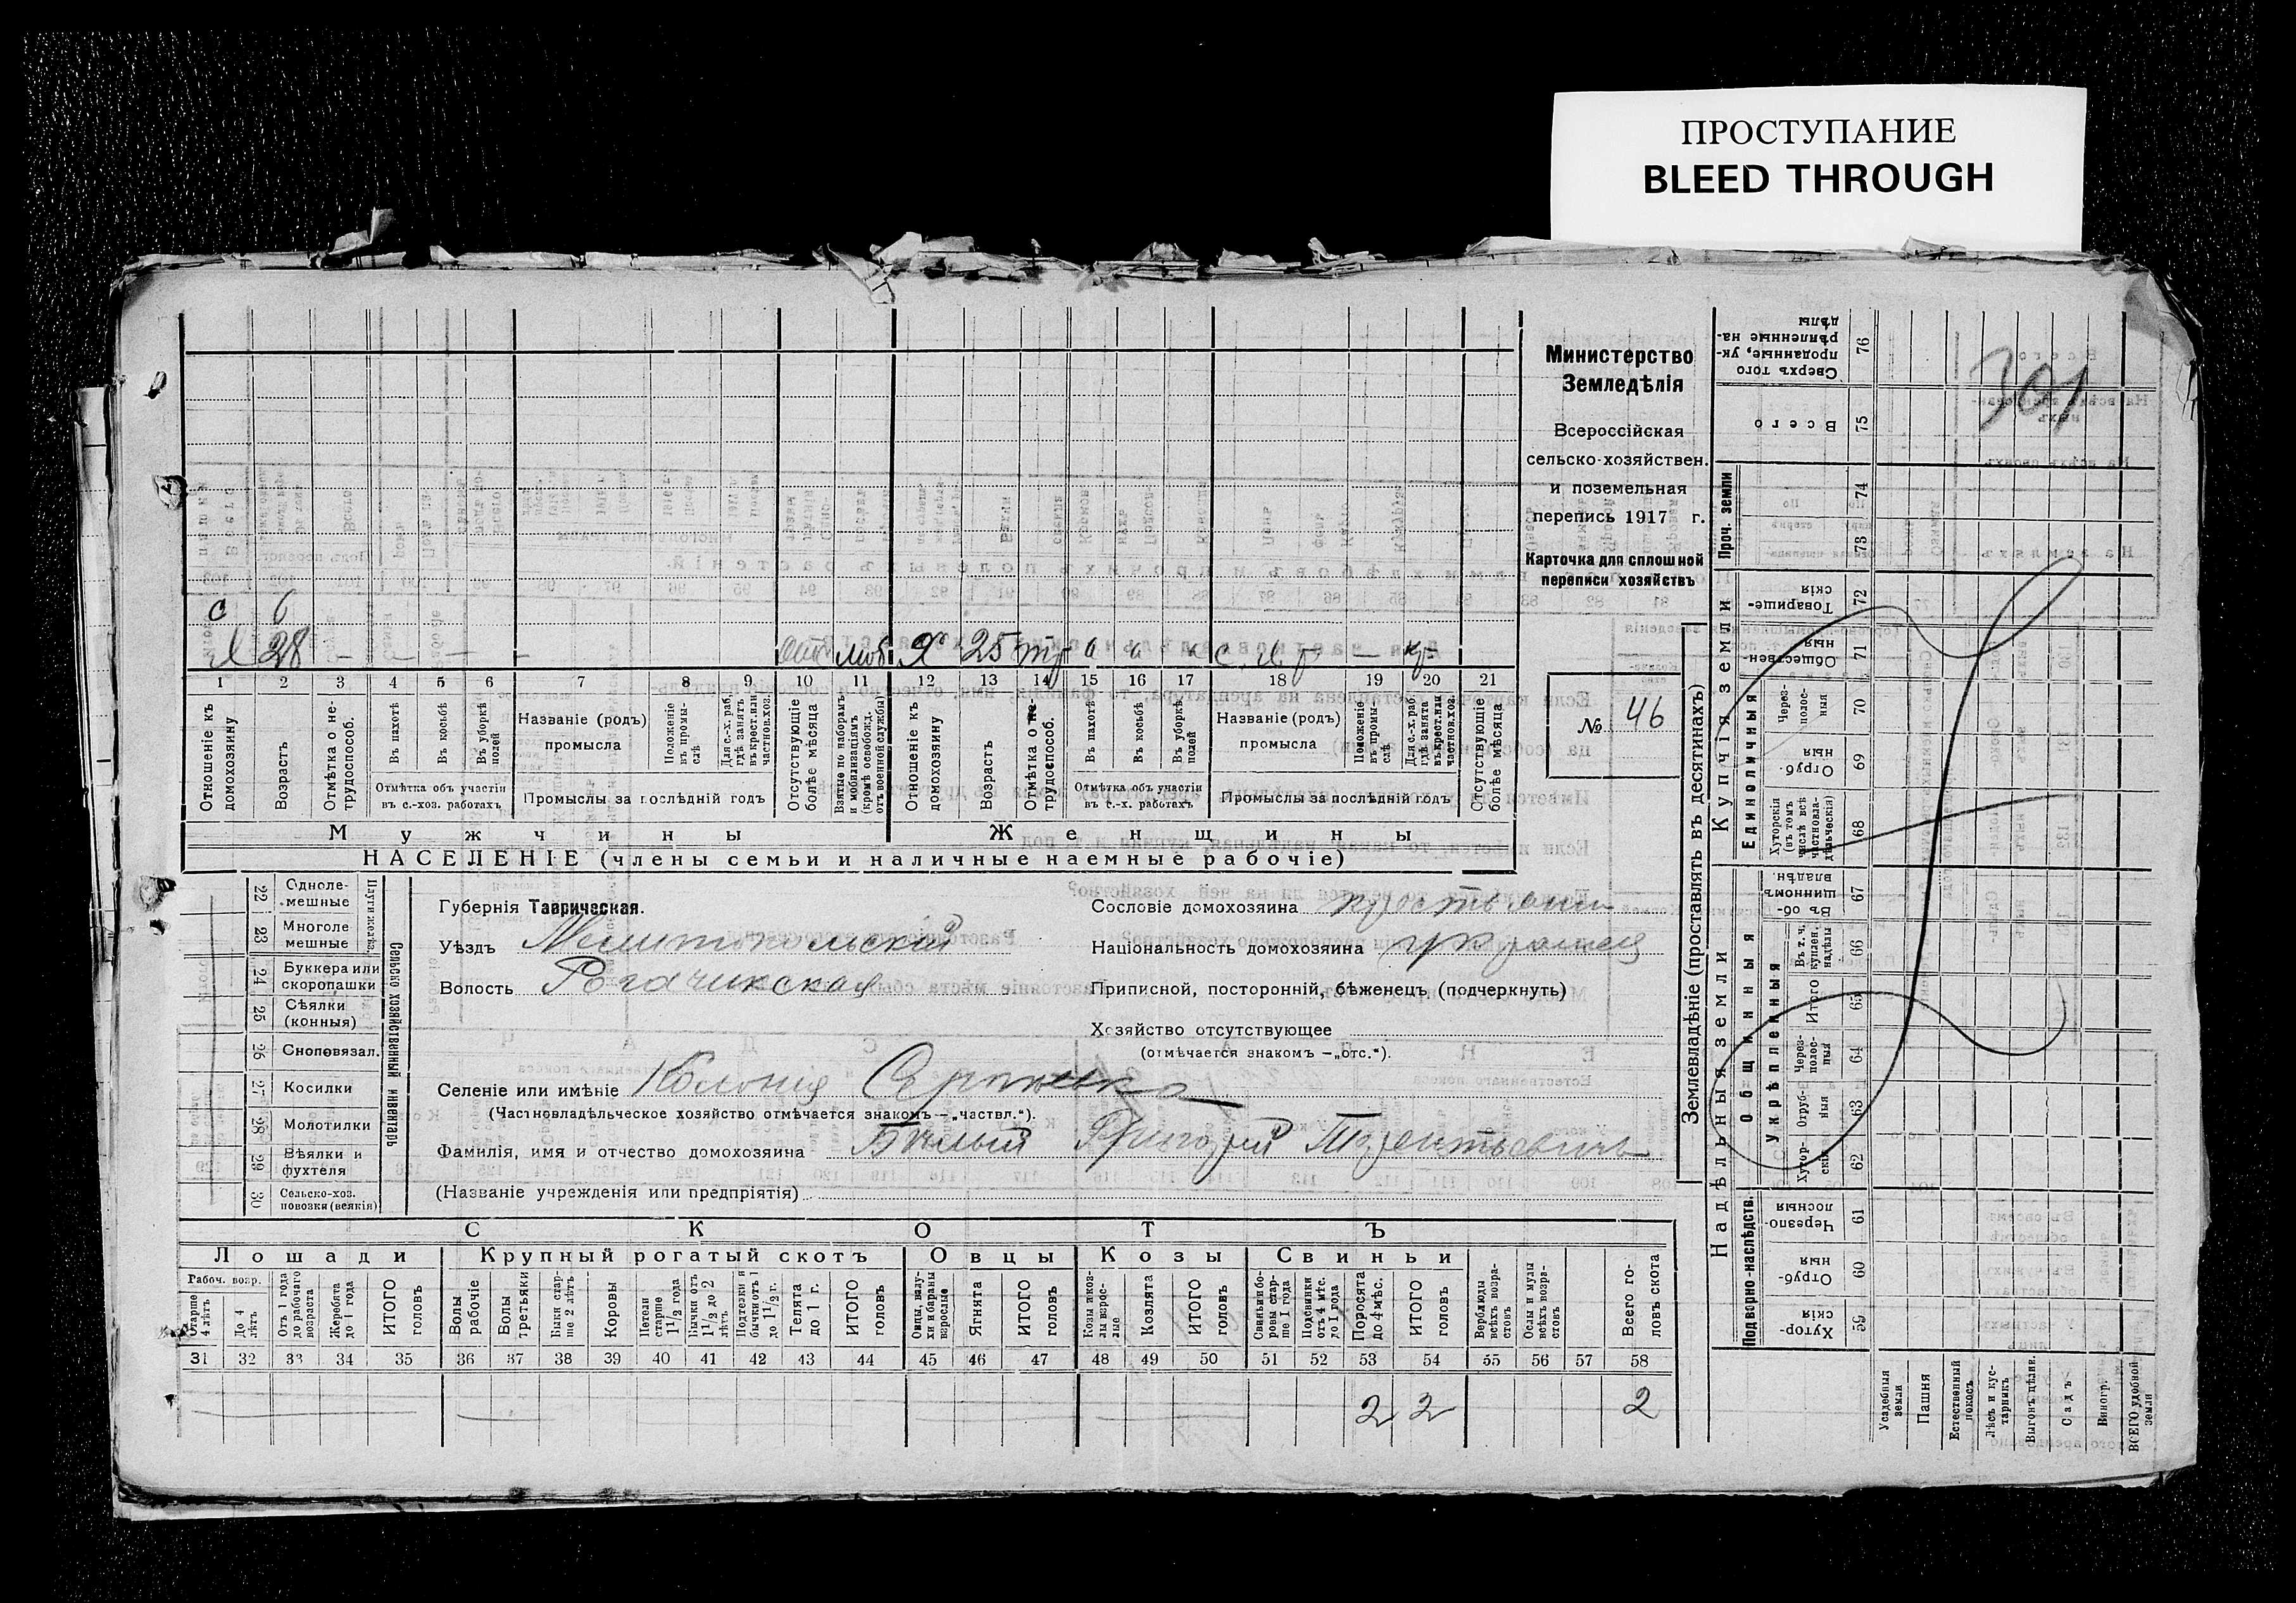 ПРОСТУПАНИЕ
BLEED THROUGH
301
Министерство
Земледѣлія
Всероссійская
сельско-хозяйствен.
и поземельная
перепись 1917 г.
Карточка для сплошной
переписи хозяйствъ
№ 46
с 6
Я 28 — — — — —
1 2 3 4 5 6 7 8 9 10 11 12 13 14 15 16 17 18 19 20 21
Отношеніе къ домохозяину
Возрастъ
Отмѣтка о не-трудоспособ.
Въ пахотѣ
Въ косьбѣ
Въ уборкѣ полей
Отмѣтка объ участіи въ с.-хоз. работахъ
Названіе (родъ) промысла
Положеніе въ промы-слѣ
Для с.-х. раб. гдѣ занятъ въ крест. или частнов. хоз.
Промыслы за послѣдній годъ
Отсутствующіе болѣе мѣсяца
Взятые по наборамъ и мобилизаціямъ (кромѣ освобожд. отъ военной службы)
Отношеніе къ домохозяину
Возрастъ
Отмѣтка о не-трудоспособ.
Въ пахотѣ
Въ косьбѣ
Въ уборкѣ полей
Отмѣтка объ участіи въ с.-х. работахъ
Названіе (родъ) промысла
Положеніе въ промы-слѣ
Для с.-х. раб. гдѣ занята въ крест. или частнов. хоз.
Промыслы за послѣдній годъ
Отсутствующіе болѣе мѣсяца
Мужчины Женщины
НАСЕЛЕНІЕ (члены семьи и наличные наемные рабочіе)
22 Одноле-мешные
23 Многоле мешные
Плуги желѣз.
24 Буккера или скоропашки
25 Сѣялки (конныя)
26 Сноповязал.
27 Косилки
28 Молотилки
29 Вѣялки и фухтеля
30 Сельско-хоз. повозки (всякія)
Сельско хозяйственный инвентарь
Губернія Таврическая.
Уѣздъ Мелитопольскій
Волость Рогачикская
Сословіе домохозяина
Національность домохозяина украинец
Приписной, посторонній, бѣженецъ (подчеркнуть)
Хозяйство отсутствующее
(отмѣчается знакомъ —„отс.“).
Селеніе или имѣніе Колонія
(Частновладѣльческое хозяйство отмѣчается знакомъ —„частвл.“).
Фамилія, имя и отчество домохозяина Бѣлый Григорій Терентьевичъ
(Названіе учрежденія или предпріятія)
СКОТЪ
Лошади Крупный рогатый скотъ Овцы Козы Свиньи
Рабоч. возр.
Старше 4 лѣтъ
До 4 лѣтъ
Отъ 1 года до рабочаго возраста
Жеребята до 1 года
ИТОГО головъ
Волы рабочіе
Волы третьяки
Быки стар-ше 2 лѣтъ
Коровы
Нетели старше 1 1/2 года
Бычки отъ 1 1/2 до 2 лѣтъ
Подтелки и бычки отъ 1 до 1 1/2 г.
Телята до 1 г.
ИТОГО головъ
Овцы, валу-хи и бараны взрослые
Ягнята
ИТОГО головъ
Козы и коз-лы взрос-лые
Козлята
ИТОГО головъ
Свиньи и бо-ровы стар-ше 1 года
Подсвинки отъ 4 мѣс. до 1 года
Поросята до 4 мѣс.
ИТОГО головъ
Верблюды всѣхъ возра-стовъ
Ослы и мулы всѣхъ возра-стовъ
Всего го-ловъ скота
31 32 33 34 35 36 37 38 39 40 41 42 43 44 45 46 47 48 49 50 51 52 53 54 55 56 57 58
2 2 2
Землевладѣніе (проставлять въ десятинахъ)
Надѣльныя земли Купчія земли Проч. земли
Подворно-наслѣдств.
Общинныя
Укрѣпленныя
Единоличныя
Хутор-скія 59
Отруб-ныя 60
Черезпо-лосныя 61
Хутор-скія 62
Отруб-ныя 63
Через-полос-ныя 64
Итого 65
Въ т. ч. куплен. надѣлы 66
Въ об-щинномъ владѣн. 67
Хуторскія (въ томъ числѣ всѣ частновла-дѣльческія) 68
Отруб-ныя 69
Через-полос-ныя 70
Обществен-ныя 71
Товарище-скія 72
73
74
Всего 75
Сверхъ того проданные, ук-рѣпленные на-дѣлы 76
Усадебныя земли
Пашня
Естественный покосъ
Лѣсъ и кус-тарникъ
Выгонъ дѣлян.
Садъ
Виногр.
ВСЕГО удобной земли